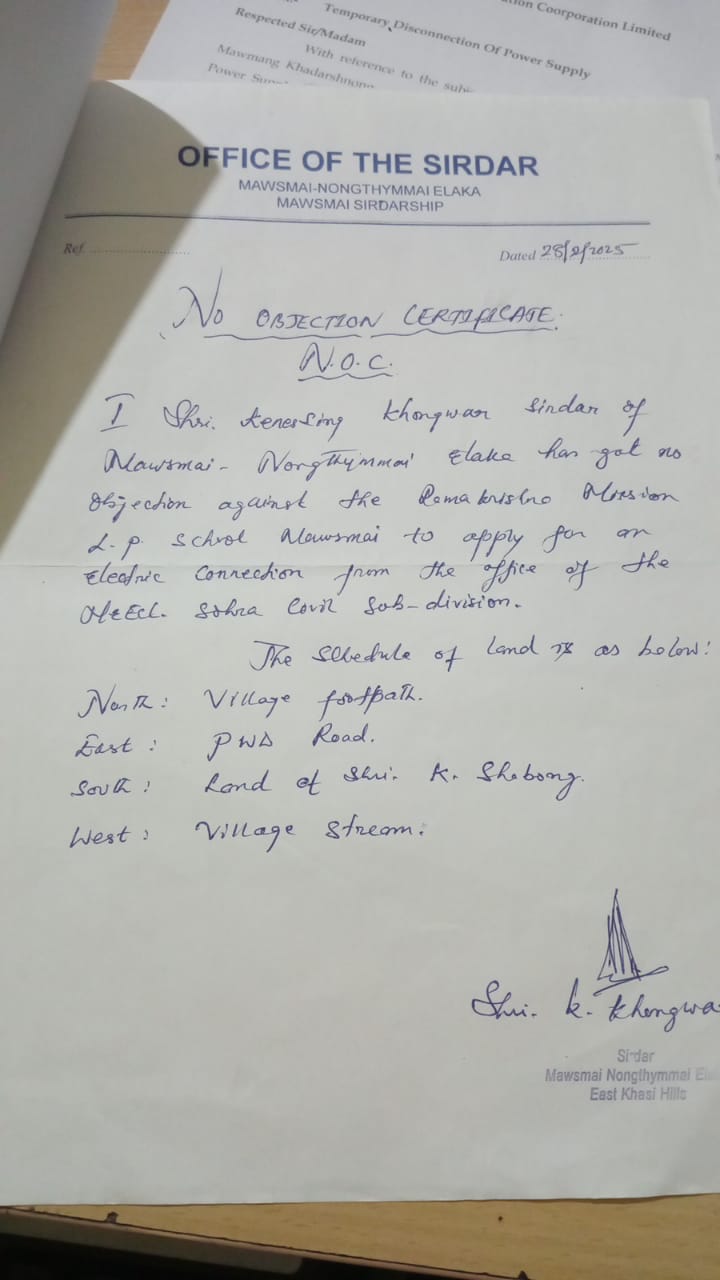 tion Coorporation Limited
Temporary Disconnection Of Power Supply
Respected Sir/Madam
With reference to the sub
Mawmang Khadarshnong
Power
OFFICE OF THE SIRDAR
MAWSMAI-NONGTHYMMAI ELAKA
MAWSMAI SIRDARSHIP
Ref. ........................
Dated 28/2/2025
NO OBJECTION CERTIFICATE.
N.O.C.
I Shri. Khongwar Sirdar of
Mawsmai - Nongthymmai Elaka has got no
Objection against the Ramakrishna Mission
L.p. School Mawsmai to apply for an
Electric Connection from the office of the
MeECL. Sohra Civil Sub-division.
The Schedule of land is as below:
North: Village footpath.
East: PWD Road.
South: Land of Shri. K. Shabong.
West: Village Stream.
Shri. K. Khongwa
Sirdar
Mawsmai Nongthymmai Ela
East Khasi Hills